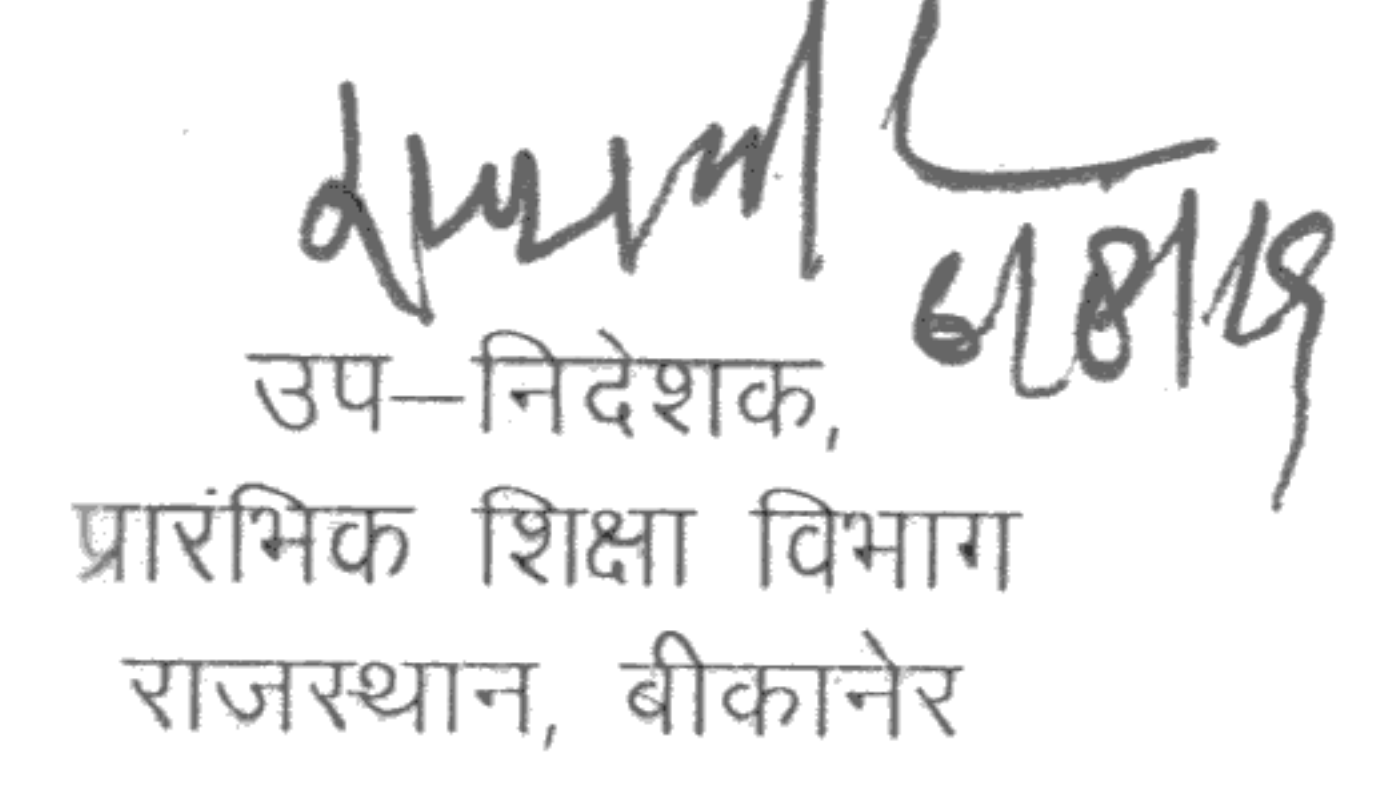 उप–निदेशक,
प्रारंभिक शिक्षा विभाग
राजस्थान, बीकानेर